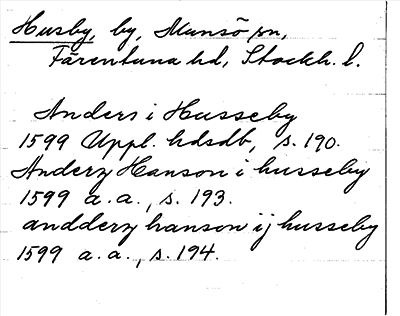 Husby, by, Munsö sn,
Färentuna hd, Stockh. l.
Anders i Husseby
1599 Uppl. hdsdb, s. 190.
Anderz Hanson i husseby
1599 a. a., s. 193.
andderz hanson ij husseby
1599 a. a., s. 194.